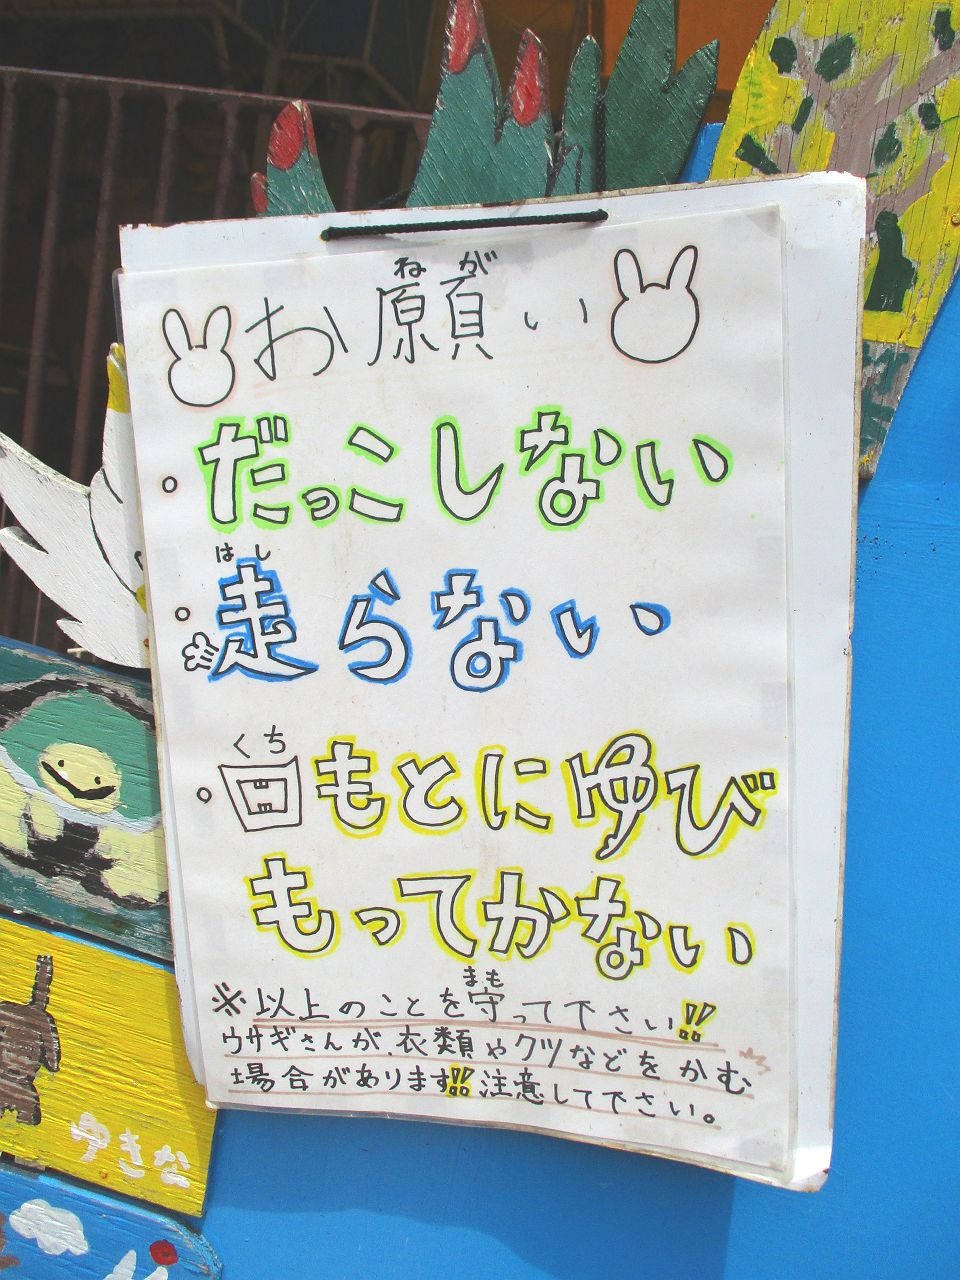 お願い
ねが
・だっこしない
・走らない
はし
・口もとにゆび
くち
もってかない
※以上のことを守って下さい!!
まも
ウサギさんが、衣類やクツなどをかむ
場合があります!!注意して下さい。
ゆきな